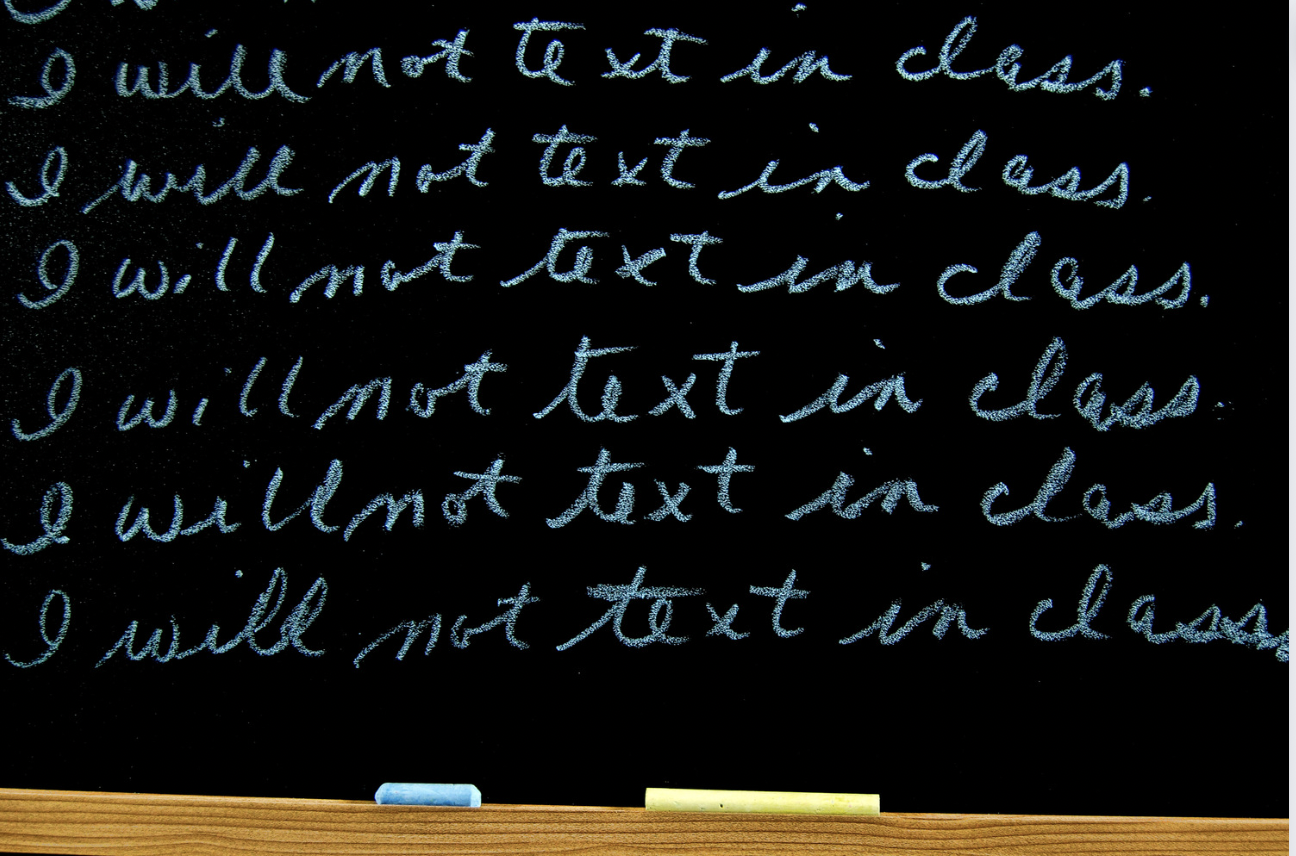 I will not text in class.
I will not text in class.
I will not text in class.
I will not text in class.
I will not text in class.
I will not text in class